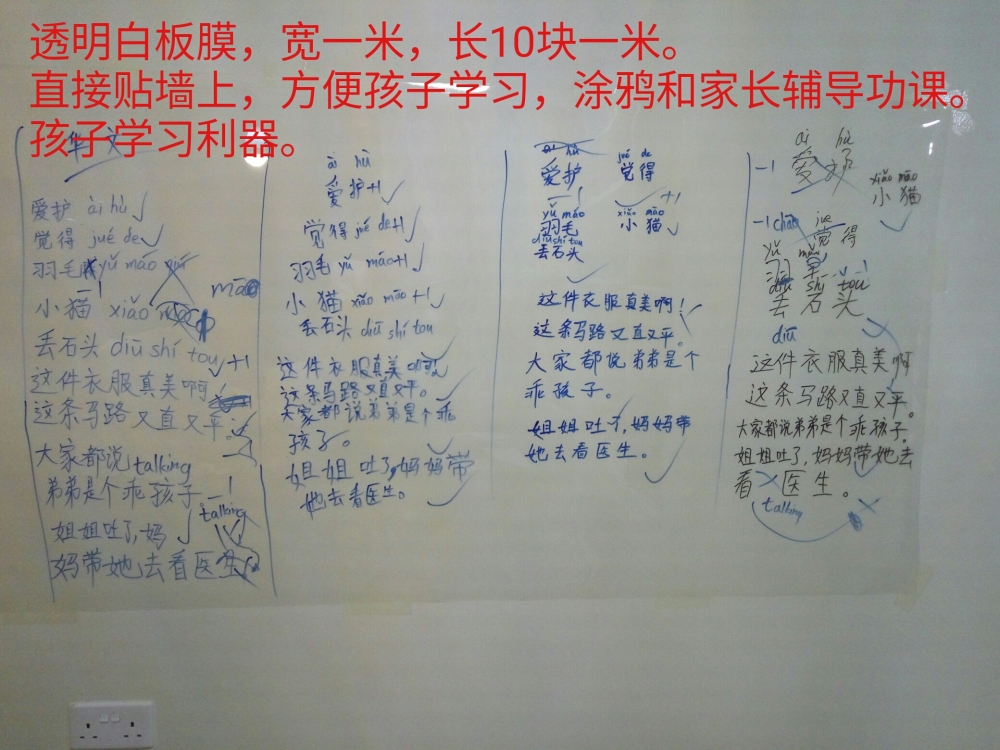 透明白板膜，宽一米，长10块一米。
直接贴墙上，方便孩子学习，涂鸦和家长辅导功课。
孩子学习利器。
华文
爱护 ài hù
觉得 jué de
羽毛 yǔ máo
māo
小猫 xiǎo
丢石头 diū shí tou +1
这件衣服真美啊
这条马路又直又平。
大家都说 talking
弟弟是个乖孩子 -1
talking
姐姐吐了,妈
妈带她去看医生
ài hù
爱护+1
觉得 jué de+1
羽毛 yǔ máo+1
小猫 xiǎo māo +1
丢石头 diū shí tou
这件衣服真美啊。
这条马路又直又平。
大家都说弟弟是个乖
孩子。
姐姐吐了,妈妈带
她去看医生。
ài hù jué de
爱护 觉得
+1
yǔ máo xiǎo māo
羽毛 小猫
diū shí tou
丢石头
这件衣服真美啊!
这条马路又直又平。
大家都说弟弟是个
乖孩子.
姐姐吐了,妈妈带
她去看医生.
ài hù
-1 爱
xiǎo māo
小猫
-1
jue
觉得
yǔ
-1
diū shí tou
丢石头
diū
这件衣服真美啊
这条马路又直又平。
大家都说弟弟是个乖孩子.
姐姐吐了,妈妈带她去
看医生。
talking